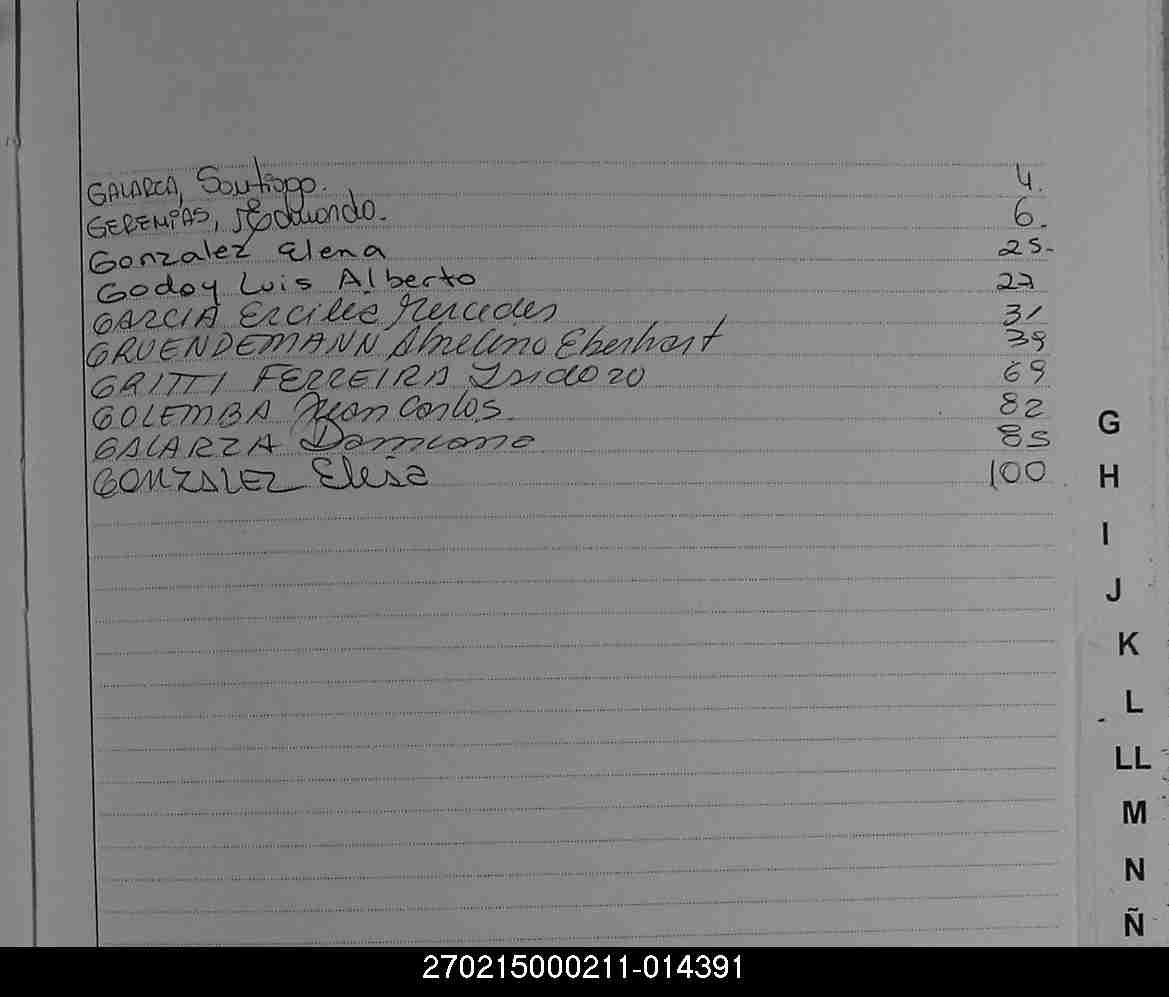 GALARCA, Santiago. 4.
GEREMIAS, Edmundo. 6.
Gonzalez Elena 25-
Godoy Luis Alberto 27
GARCIA Ercilia Mercedes 31
GRUENDEMANN Abnelino Eberhart 39
GRITTI FERREIRA Isidoro 69
GOLEMBA Juan Carlos 82
GALARZA Damiano 85
GONZALEZ Elisa 100
G
H
I
J
K
L
LL
M
N
Ñ
270215000211-014391